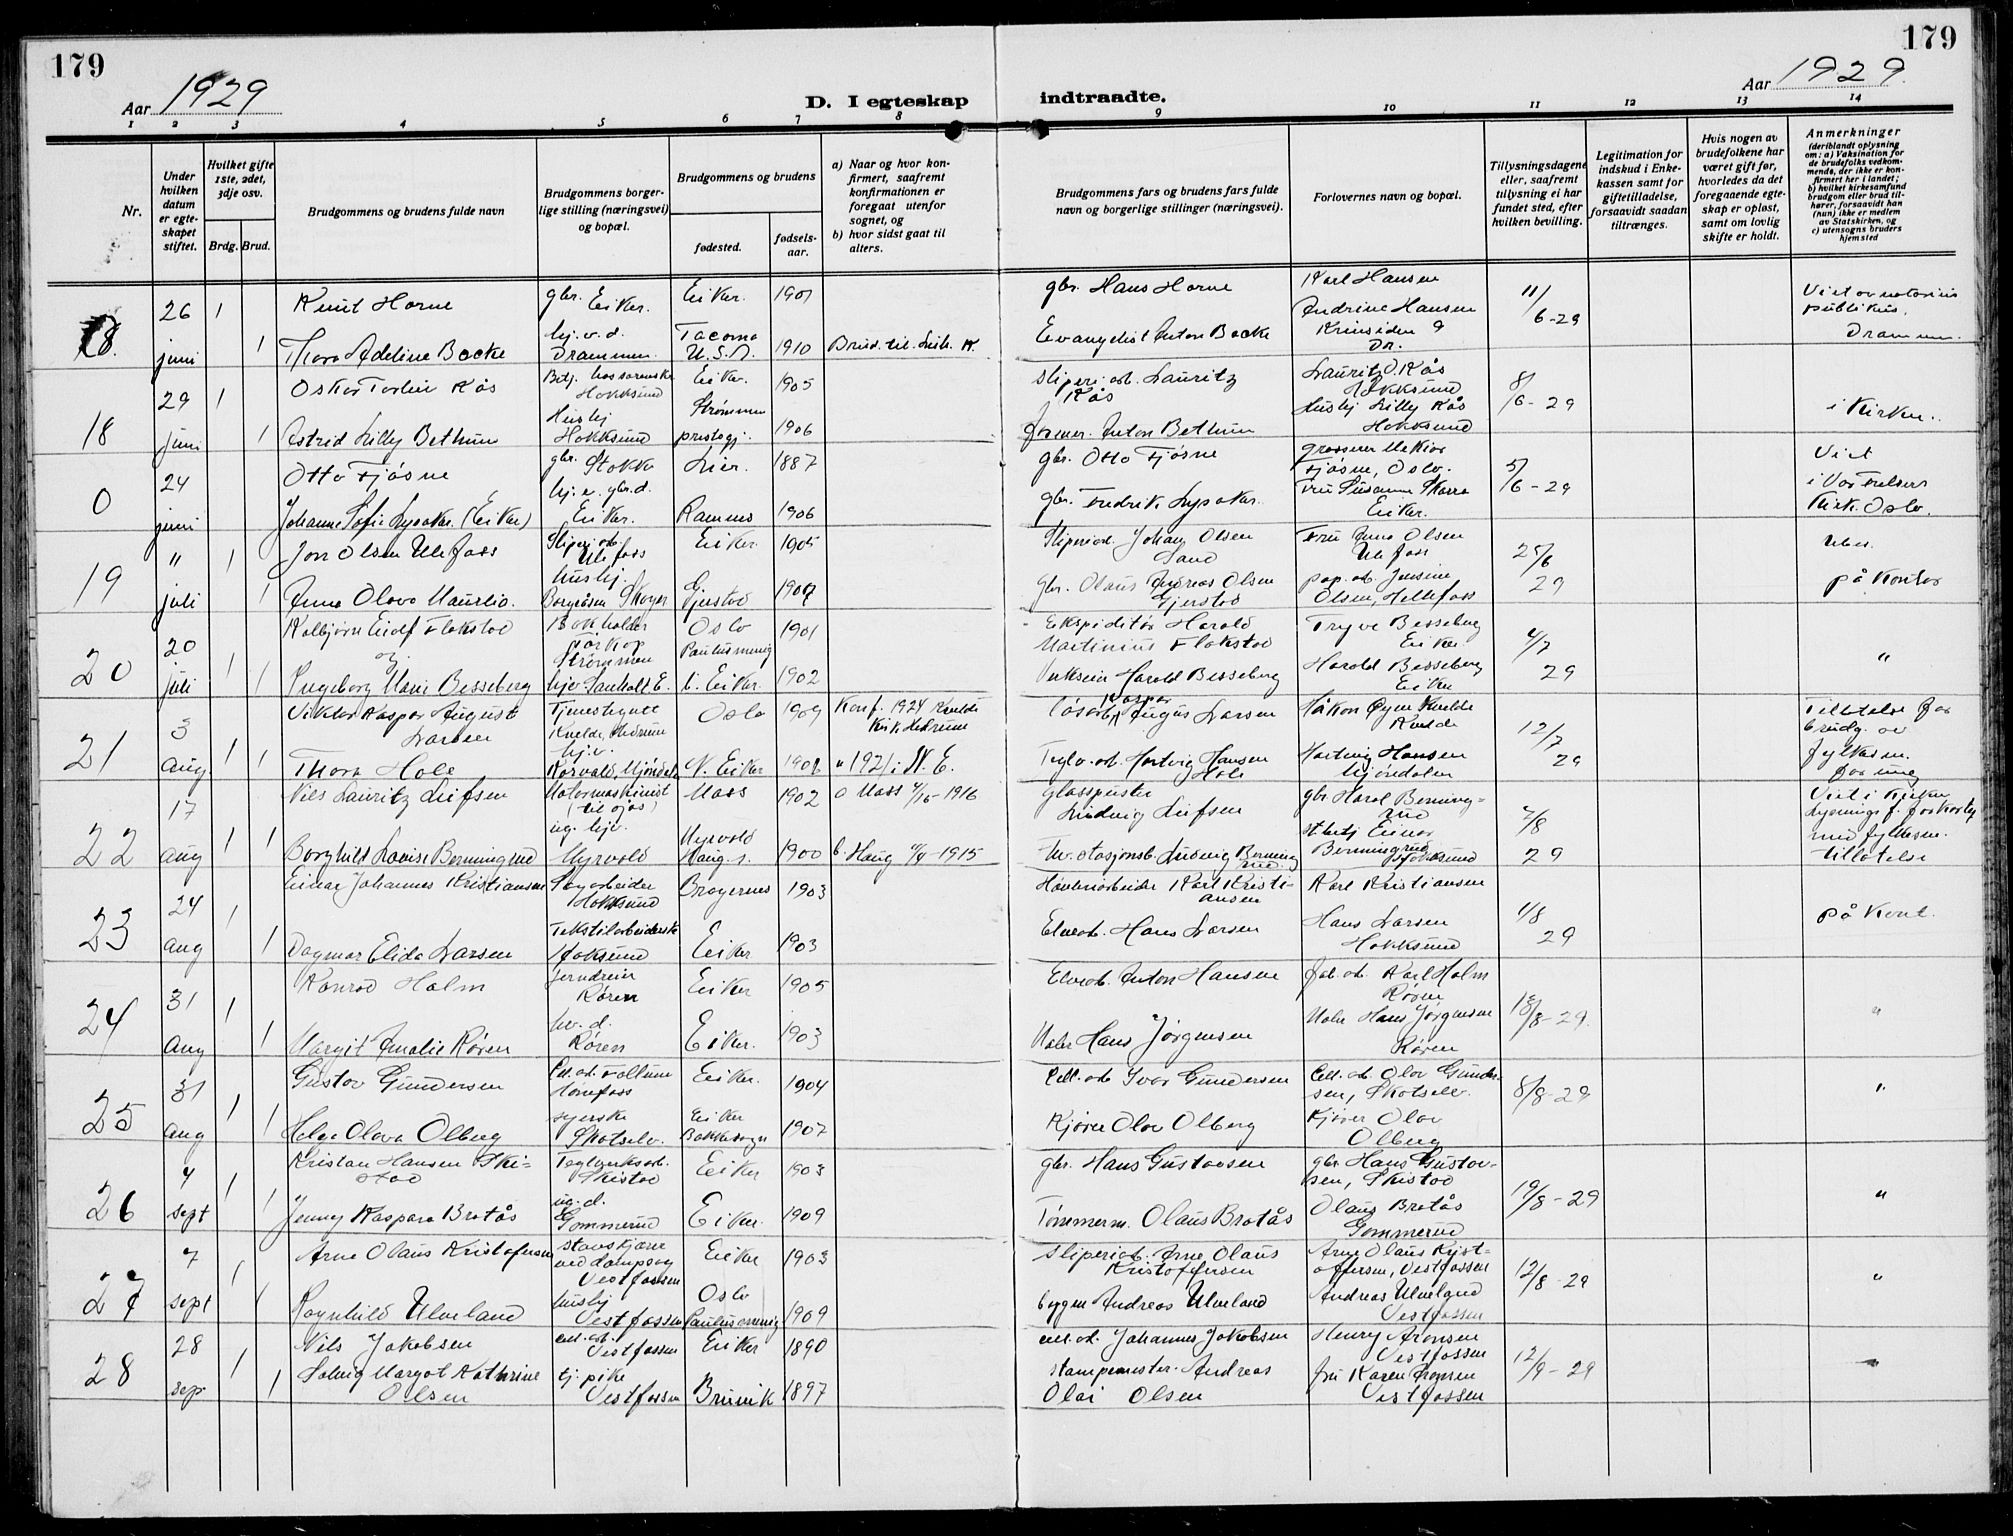 179
179
Aar 1929
D. I egteskap
indtraadte.
Aar 1929.
1 2 3 4 5 6 7 8 9 10 11 12 13 14
Nr.
Under hvilken datum er egteskapet stiftet.
Hvilket gifte 1ste, 2det, 3dje osv.
Brdg. Brud.
Brudgommens og brudens fulde navn
Brudgommens borgerlige stilling (næringsvei) og bopæl.
Brudgommens og brudens
fødested.
fødselsaar.
a) Naar og hvor konfirmert, saafremt konfirmationen er foregaat utenfor sognet, og
b) hvor sidst gaat til alters.
Brudgommens fars og brudens fars fulde navn og borgerlige stillinger (næringsvei).
Forlovernes navn og bopæl.
Tillysningsdagene eller, saafremt tillysning ei har fundet sted, efter hvilken bevilling.
Legitimation for indskud i Enkekassen samt for giftetilladelse, forsaavidt saadan tiltrænges.
Hvis nogen av brudefolkene har været gift før, hvorledes da det foregaaende egteskap er opløst, samt om lovlig skifte er holdt.
Anmerkninger
(deriblandt oplysning om: a) Vaksination for de brudefolks vedkommende, der ikke er konfirmert her i landet;
b) hvilket kirkesamfund brudgom eller brud tilhører, forsaavidt han (hun) ikke er medlem av Statskirken, og
c) utensogns bruders hjemsted
26 juni 1 Knut Horne gbr. Eiker. Eiker. 1901 gbr. Hans Horne Karl Hansen 11/6-29
1 Thora Adeline Backe hj. v. d. Drammen. Tacoma U.S.A. 1910 Evangelist Anton Backe Andrine Hansen Dr. Drammen.
18 29 juni 1 Oskar Torleiv Kås Hokksund Eiker. 1905 Sliperiarb. Lauritz Kås Lauritz O. Kås Hokksund 8/6-29 i Kirken.
1 Astrid Lilly Bethum Hushj Hokksund Strømmen prestegj. 1906 Anton Bethum Hushj Lilly Kås Hokksund
0 24 juni Otto Fjøsne gbr. Stokke Lier. 1887 gbr. Otto Fjøsne Fjøsne, Oslo. 5/6-29 Viet
Johanne Sofie Lysaker (Eiker) hj. v. gbr. d. Eiker. Ramnes 1906 gbr. Fredrik Lysaker. Fru Susanne Skarra Eiker. i Vor Frelsers Kirk. Oslo.
19 " juli 1 Jon Olsen Ulefoss Sliperiarb. Ulefoss Eiker. 1905 Sliperiarb. Johan Olsen Sand Fru Anna Olsen Ulefoss 25/6 29
1 Anna Olava Maurlia. hushj. Skoger Gjerstad gbr. Olaus Andreas Olsen Gjerstad pap. arb. Jensine Olsen, Hellefoss på Kontor
20 20 juli 1 Kolbjørn Eidf Flakstad og Bokholder Strømmen Oslo Paulus menig. 1901 Ekspeditør Harald Martinius Flakstad Trygve Besseberg Eiker 4/7 29 "
1 Ingeborg Marie Besseberg hjv. Sanholt E. V. Eiker. 1902 Harald Besseberg Harald Besseberg Eiker
21 3 aug. 1 Viktor Kaspar August Larsen Tjenestegutt Kvelde, Hedrum Oslo 1909 Konf. 1924 Kvelde Kirk. Hedrum løsarb. Kaspar August Larsen Håkon Øyen Kvelde Kvelde 12/7 29 Tillatelse for brudg. av fylkesm.
1 Thora Hole hjv. Mjøndalen N. Eiker " 1921 i N. E. Teglv. arb. Hartvig Hansen Hole Hartvig Hansen Mjøndalen
22 17 aug 1 Nils Lauritz Leifsen Motormaskinist (til sjøs) Moss 1902 a Moss 4/10-1916 Glasspuster Ludvig Leifsen gbr Harald Berningrud 2/8 29 Viet i Kirken
1 Borghild Lovise Berningrud ug. hjv. Myrvold Myrvold Haug s. 1900 b. Haug 4/4-1915 Ludvig Berningrud st.betj Einar Berningrud Hokksund tillatelse
23 24 aug 1 Einar Johannes Kristiansen Sagarbeider Hokksund Bragernes 1903 Høvleriarbeider Karl Kristiansen Karl Kristiansen 1/8 29 på Kont.
1 Dagmar Elida Larsen Tekstilarbeiderske Hoksund Eiker 1903 Elvearb. Hans Larsen Hans Larsen Hokksund
24 31 Aug 1 Konrad Holm Jerndreier Røren Eiker 1905 Elvearb. Anton Hansen fab. arb. Karl Holm Røren 18/8-29. "
1 Margit Amalie Røren hv. d. Røren Eiker. 1903 Maler Hans Jørgensen Maler Hans Jørgensen Røren
25 31 aug 1 Gustav Gundersen Cell. arb. Follum Hønefoss Eiker. 1904 Cell. arb Ivar Gundersen Cell. arb Olav Gundersen, Skotselv. 8/8-29 "
1 Helga Olava Olberg syerske Skotselv. Eiker Bakkesogn 1907 Kjører Olav Olberg Kjører Olav Olberg
26 4 sept 1 Kristian Hansen Skistad Teglverksarb. Skistad Eiker 1903 gbr. Hans Gustavsen gbr. Hans Gustavsen, Skistad 19/8-29 "
1 Jenny Kaspara Bratås ug. d. Gommerud Eiker. 1909 Tømmerm. Olaus Bratås Olaus Bratås Gommerud
27 7 sept 1 Arne Olaus Kristofersen stavskjærer ved dampsag Vestfossen Eiker 1903 Sliperiarb. Arne Olaus Kristoffersen Arne Olaus Kristoffersen, Vestfossen 12/8-29 "
1 Ragnhild Ulveland hushj Vestfossen Oslo Paulus menig 1909 byggm Andreas Ulveland Andreas Ulveland Vestfossen
28 28 sep. 1 Nils Jakobsen cell. arb. Vestfossen Eiker 1890 cell. arb. Johannes Jakobsen Henry Aronsen Vestfossen 12/9-29
1 Solveig Margot Kathrine Olsen tj. pike Vestfossen Bruvik 1897 Stampemester Andreas Olai Olsen fru Karen Aronsen Vestfossen